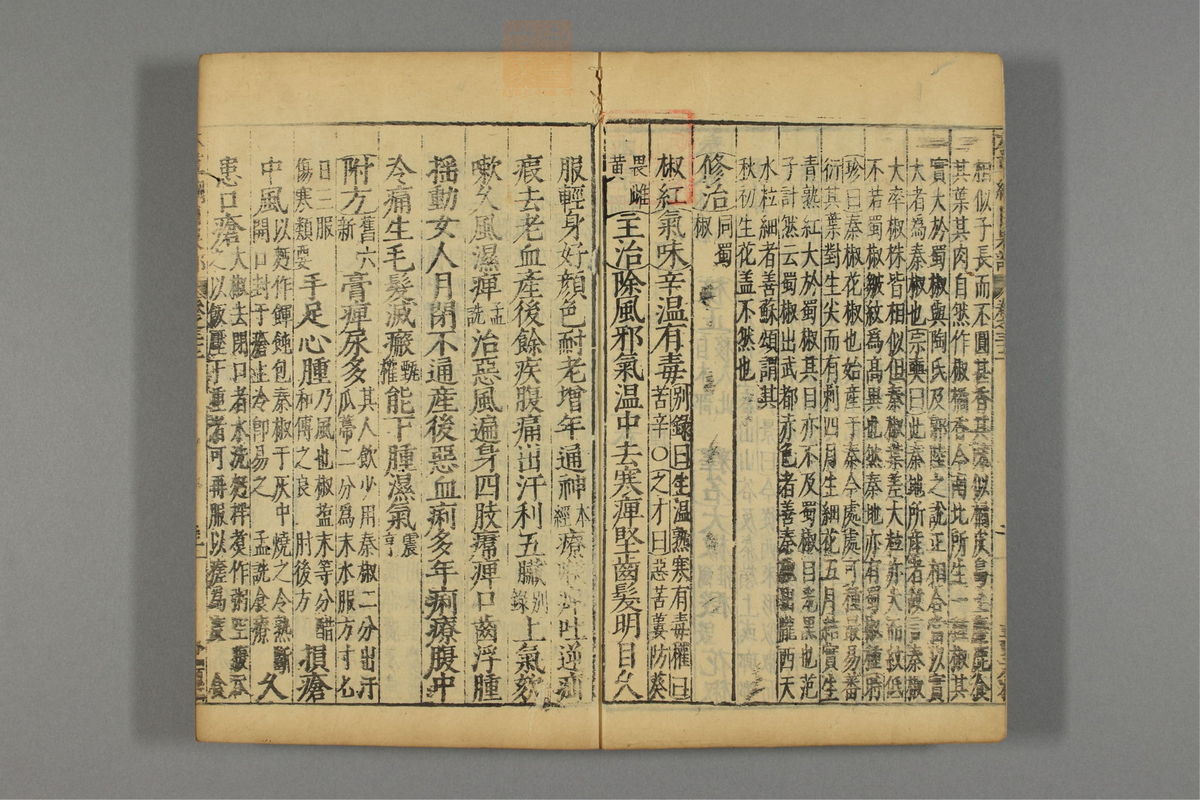 相似子長而不圓甚香其味似橘皮島上獐鹿食
其葉其肉自然作椒橘香今南北所生一種椒其
實大於蜀椒與陶氏及郭陸之說正相合當以實
大者為秦椒也宗奭曰此秦地所産者故言秦椒
大率椒株皆相似但秦椒葉差大粒亦大而紋低
不若蜀椒皺紋爲高異也然秦地亦有蜀椒種時
珍曰秦椒花椒也始産于秦今處處可種最易蕃
衍其葉對生尖而有刺四月生細花五月結實生
青熟紅大於蜀椒其目亦不及蜀椒目光黑也范
子計然云蜀椒出武都赤色者善秦椒出隴西天
水粒細者善蘇頌謂其
秋初生花盖不然也
修治同蜀椒
椒紅氣味辛温有毒别錄曰生温熟寒有毒權曰苦辛○之才曰惡苦蔞防葵
畏雌黄主治除風邪氣温中去寒痺堅齒髮明目久
服輕身好顔色耐老增年通神本經療喉痺吐逆疝
瘕去老血産後餘疾腹痛出汗利五臟别錄上氣欬
嗽久風濕痺孟詵治惡風遍身四肢𤸷痺口齒浮腫
揺動女人月閉不通産後惡血痢多年痢療腹中
冷痛生毛髮滅瘢甄權能下腫濕氣震亨
附方舊六新膏痺尿多其人飲少用秦椒二分出汗瓜蒂二分爲末水服方寸匕
日三服傷寒類要手足心腫乃風也椒盐末等分醋和傅之良肘後方損瘡
中風以麪作餫飩包秦椒于灰中燒之令熟斷開口封于瘡上冷即易之孟詵食療久
患口瘡大椒去閉口者水洗麪拌煮作粥空腹吞之以飯壓下重者可再服以瘥爲度食